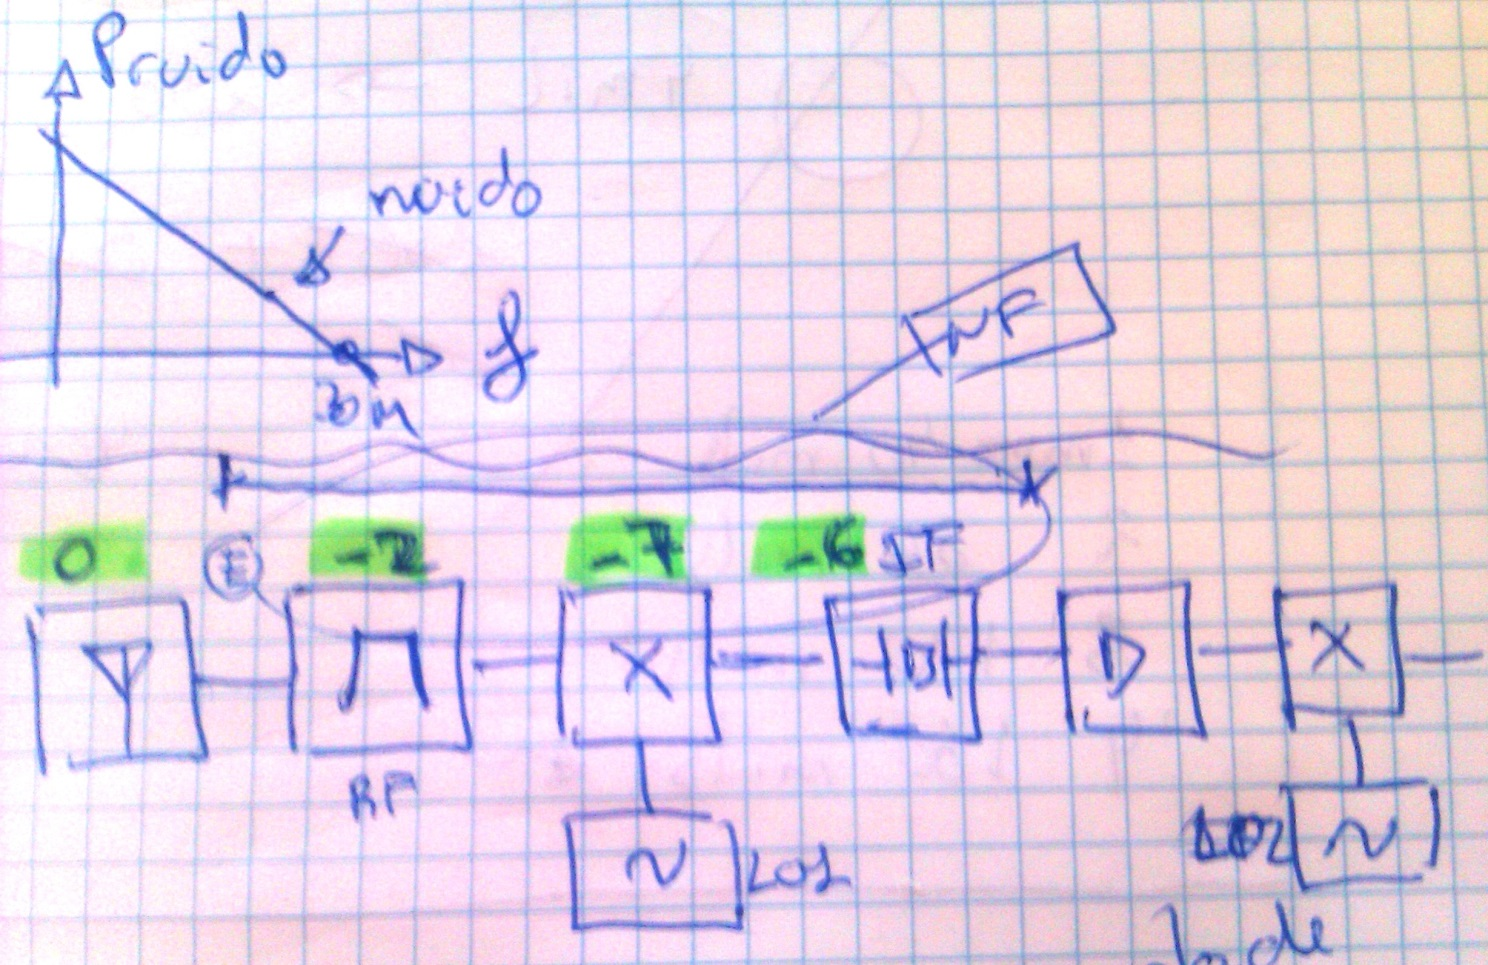 Pruido
ruido
f
30M
NF
0
E
-2
-7
-6
IF
X
X
RF
LO1
LO2
de